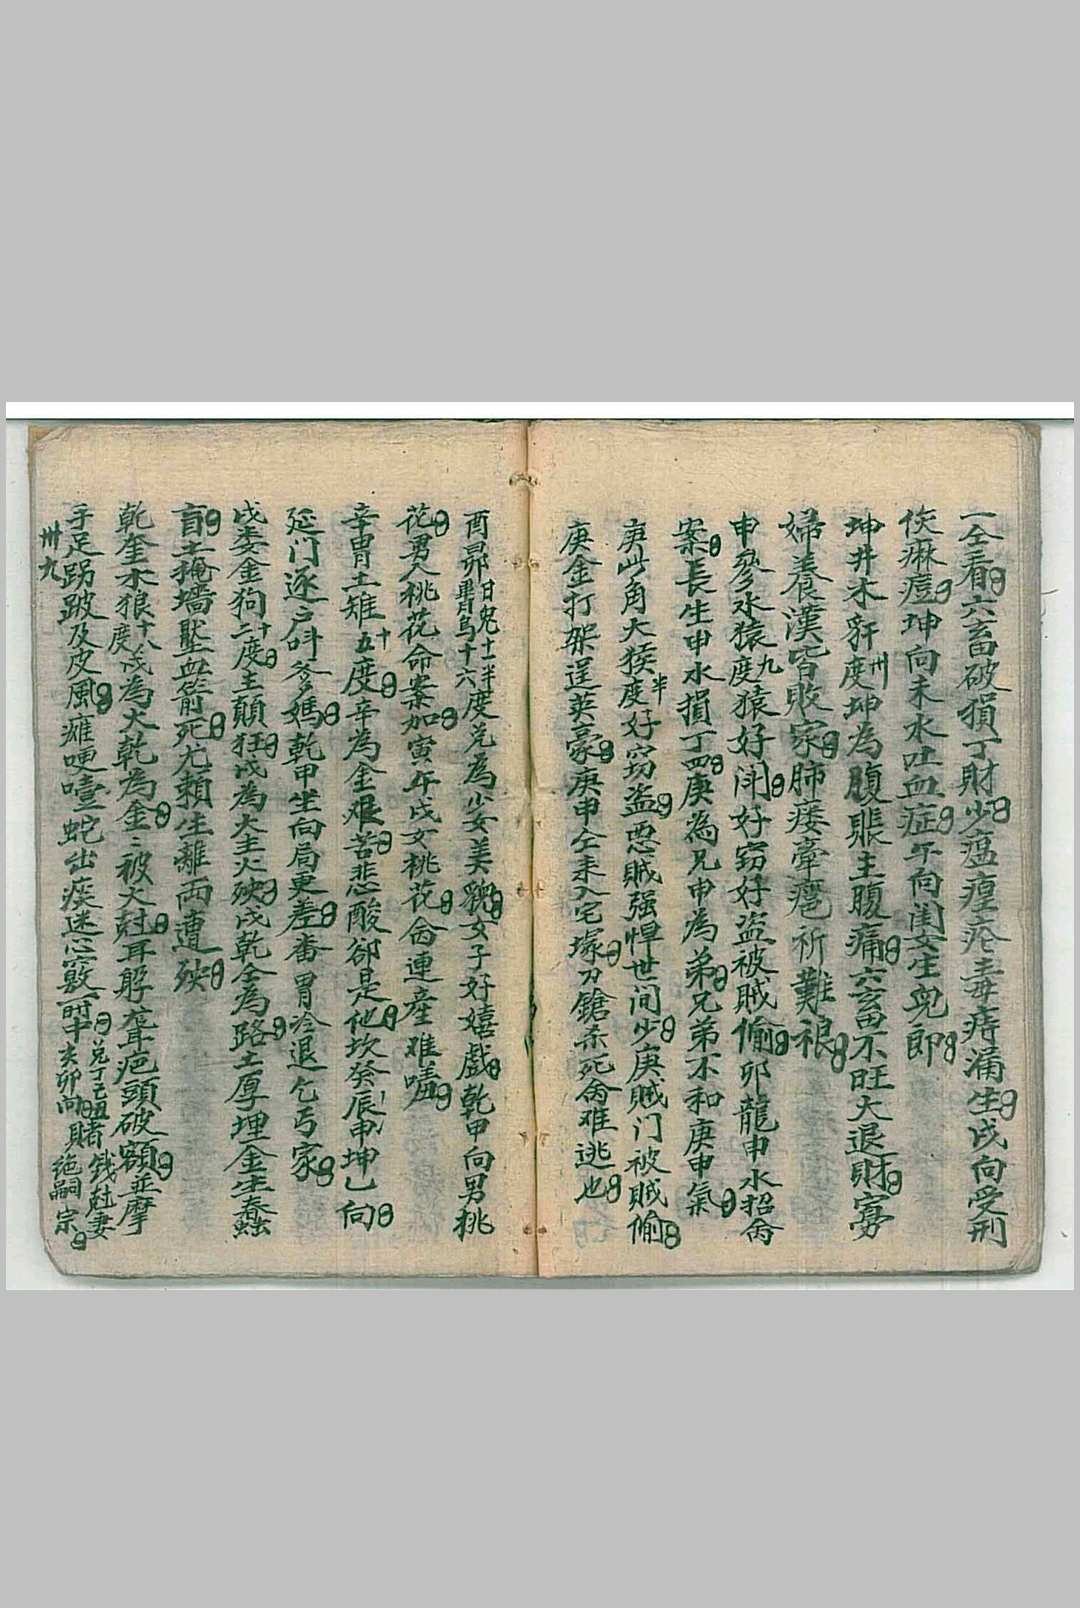 一仝看六畜破損丁財少瘟㾮瘡毒痔漏生戌向受刑
疾痳痘坤向未水吐血症午向閨女生兒郎
坤井木豻卅度坤為腹賬主腹痛六畜不旺大退財寡
婦養漢皆敗家肺痿牽疤祈難禳
申參水猿九度猿好闹好窃好盗被賊偷卯龍申水招禽
案長生申水損丁四庚為兄申為弟兄弟不和庚申氣
庚此角火猴半度好窃盗恶賊强悍世间少庚賊门被賊偷
庚金打架逞英豪庚申仝来入宅塚刀鎗杀死禽难逃也
酉昴日兔十一半畢月乌十六度兑為少女美貌女子好嬉戲乾甲向男挑
花男人桃花命案加寅午戌女桃花禽連産难嗟
辛胃土雉十五度辛為金艰苦悲酸卻是他坎癸辰申坤乙向
延门逐户叫爹媽乾甲坐向局更差番胃冷退乞丐家
戌娄金狗十二度主顛狂戌為大主火殃戌乾仝為路土厚埋金生春蟲
盲土掩墻壓血箭死尤賴生離两遭殃
乾奎木狼十八度戌為火乾為金金被火尅耳解聋耳疤頭破額並摩
手足跛及皮風瘫哽噎蛇出疾迷心竅一时卒亥卯向
兑丁巳丑賭錢尅妻
絶嗣宗
卅九